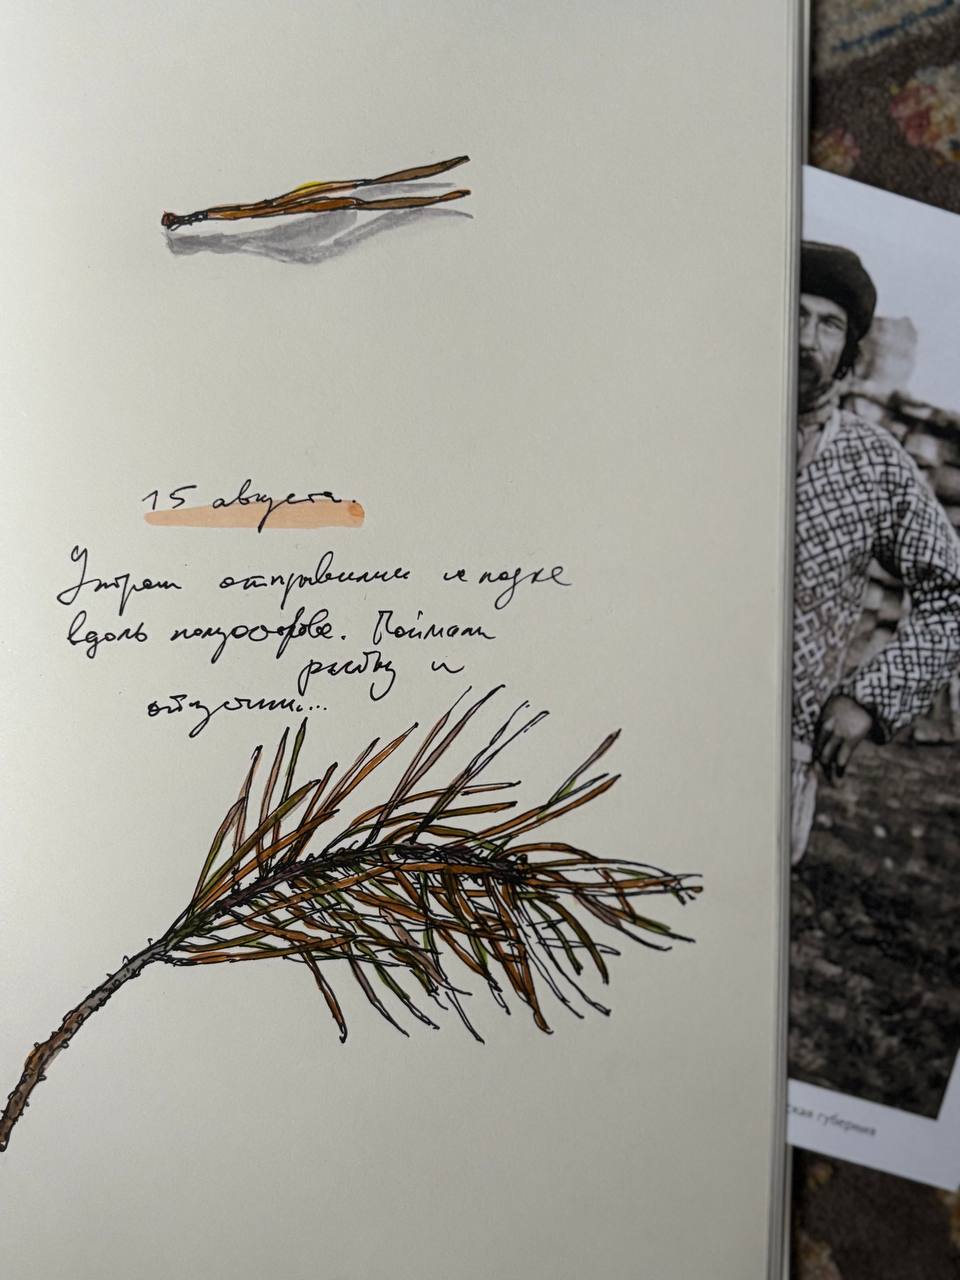 15 августа.
Утром отправились на лодке
вдоль полуострова. Поймали
рыбку и
отпустили...
ская губерния